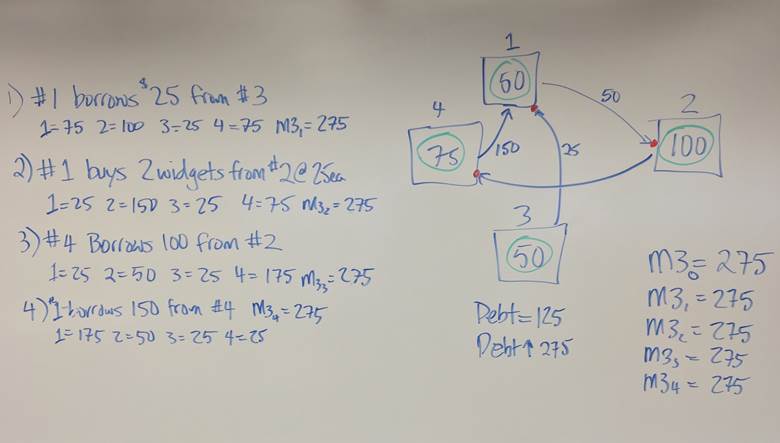 1) #1 borrows $25 from #3
1=75 2=100 3=25 4=75 m3₁=275
2) #1 buys 2 widgets from #2 @ 25ea
1=25 2=150 3=25 4=75 m3₂=275
3) #4 Borrows 100 from #2
1=25 2=50 3=25 4=175 m3₃=275
4) #1 borrows 150 from #4 m3₄=275
1=175 2=50 3=25 4=25
1
50
4
75
150
50
2
100
25
3
50
Debt=125
Debt↑ 275
m3₀=275
m3₁=275
m3₂=275
m3₃=275
m3₄=275